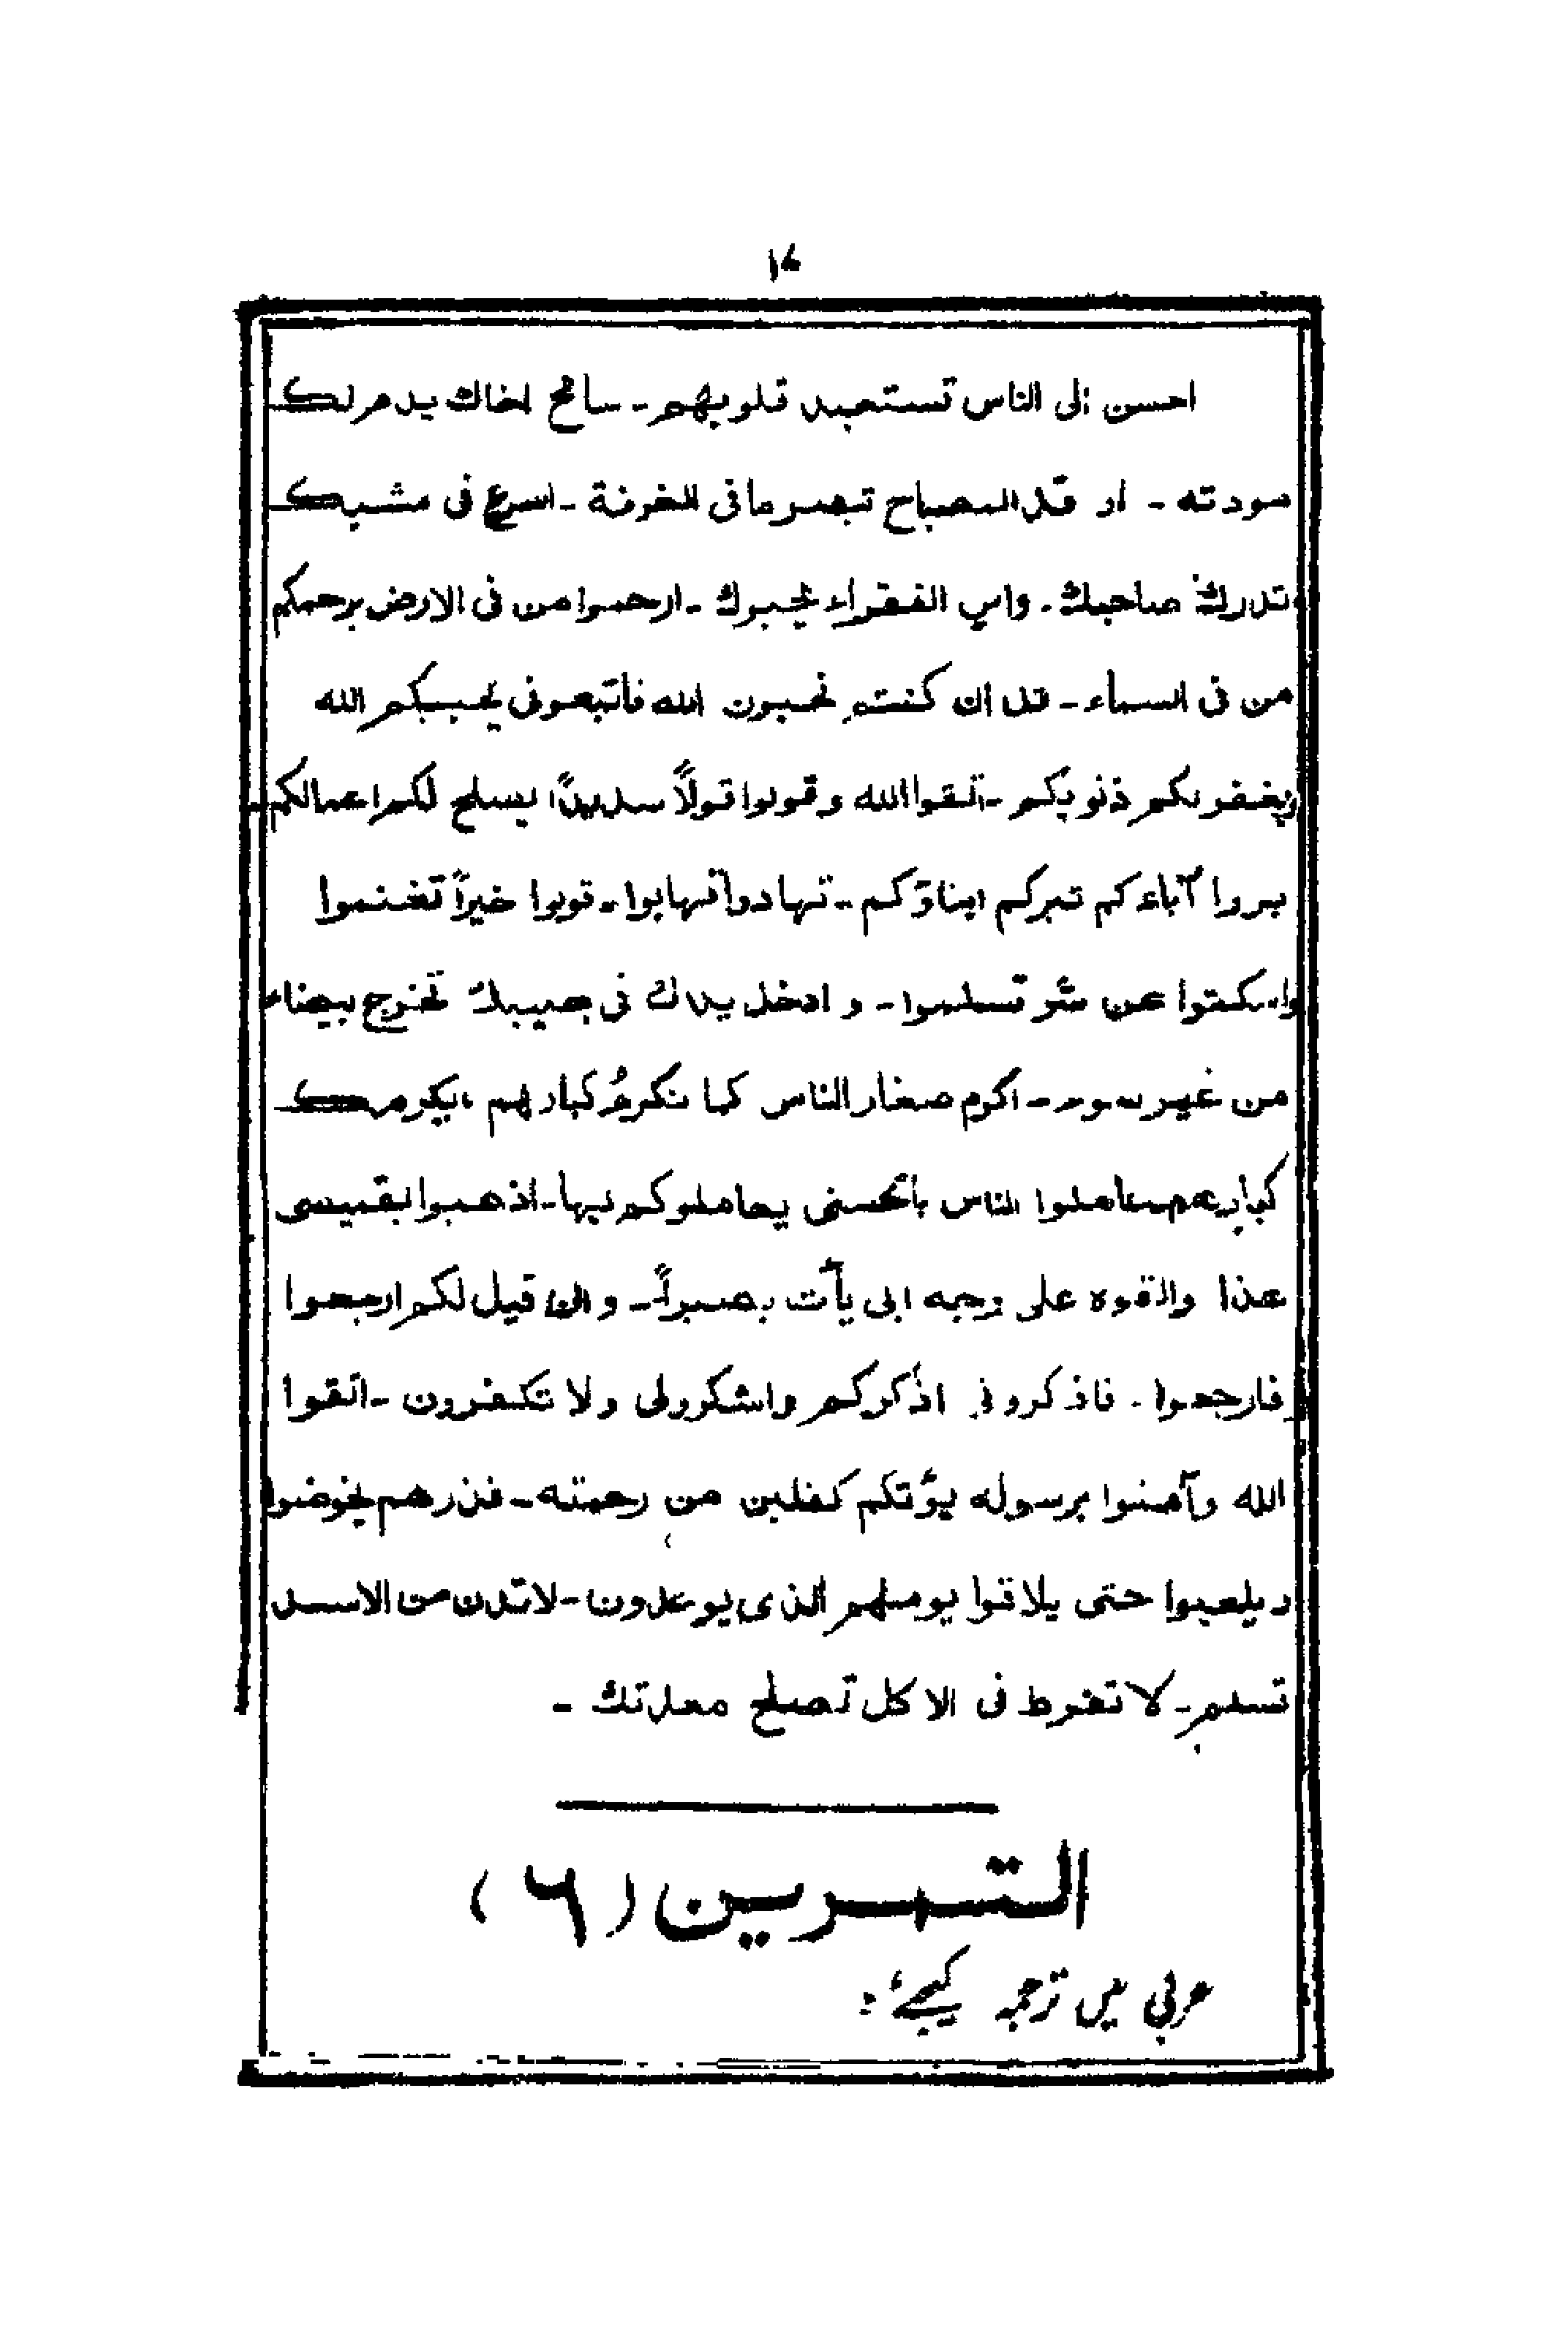 احسن الى الناس تستعبد قلوبهم - سامح اخاك يدم لك
مودته - اوقد المصباح تبصر ما فى الغرفة - اسرع فى مشيك
تدرك صاحبك - واس الفقراء يحبوك - ارحموا من فى الارض يرحمكم
من فى السماء - قل ان كنتم تحبون الله فاتبعونى يحببكم الله
ويغفر لكم ذنوبكم - اتقوا الله وقولوا قولاً سديداً يصلح لكم اعمالكم
بروا آباءكم تبركم ابناؤكم - تهادوا تهابوا - قولوا خيراً تغنموا
واسكتوا عن شر تسلموا - و ادخل يدك فى جيبك تخرج بيضاء
من غير سوء - اكرم صغار الناس كما تكرم كبارهم يكرمك
كبارهم - عاملوا الناس بالحسنى يعاملوكم بها - اذهبوا بقميصى
هذا والقوه على وجه ابى يأت بصيراً - وان قيل لكم ارجعوا
فارجعوا - فاذكرونى اذكركم واشكرولى ولا تكفرون - اتقوا
الله وآمنوا برسوله يؤتكم كفلين من رحمته - فذرهم يخوضوا
ويلعبوا حتى يلاقوا يومهم الذى يوعدون - لا تدن من الاسد
تسلم - لا تفرط فى الاكل تصلح معدتك -
التمرين (٦)
عربی میں ترجمہ کیجئے :